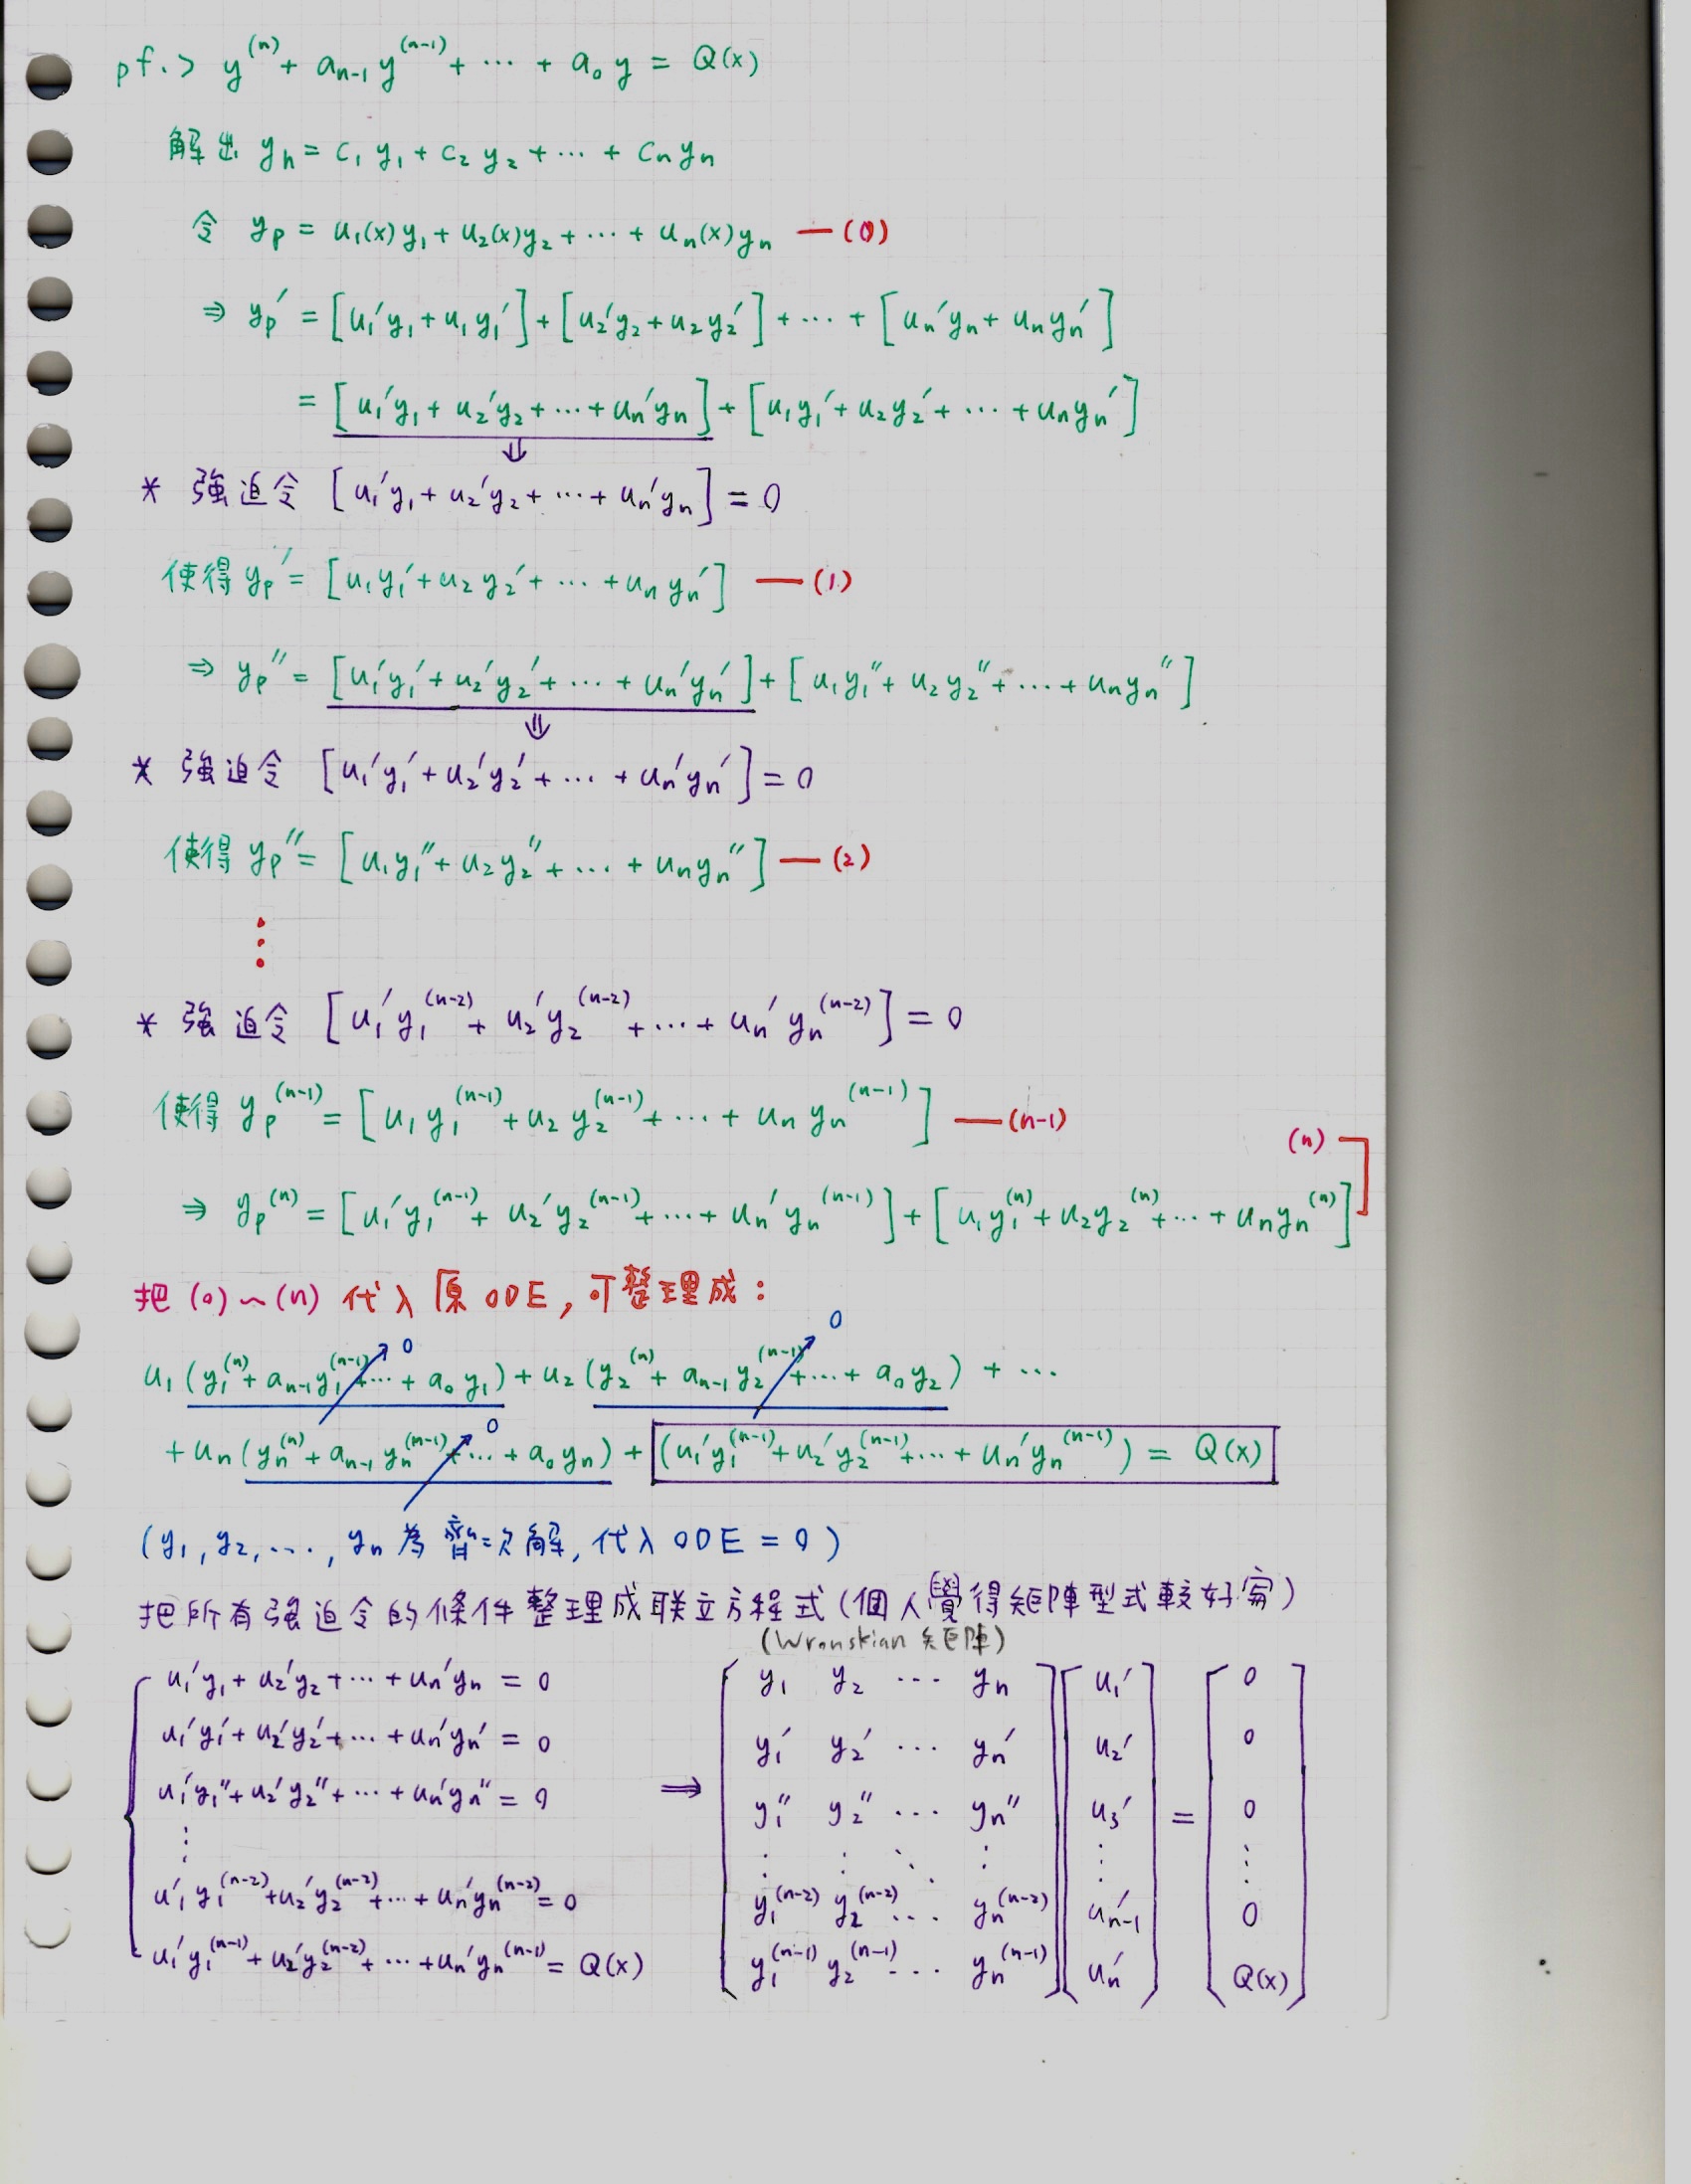 pf.> y⁽ⁿ⁾ + aₙ₋₁ y⁽ⁿ⁻¹⁾ + ⋯ + a₀ y = Q(x)
解出 yₕ = c₁ y₁ + c₂ y₂ + ⋯ + cₙ yₙ
令 yₚ = u₁(x)y₁ + u₂(x)y₂ + ⋯ + uₙ(x)yₙ —(0)
⇒ yₚ′ = [u₁′y₁ + u₁y₁′] + [u₂′y₂ + u₂y₂′] + ⋯ + [uₙ′yₙ + uₙyₙ′]
= [u₁′y₁ + u₂′y₂ + ⋯ + uₙ′yₙ] + [u₁y₁′ + u₂y₂′ + ⋯ + uₙyₙ′]
⇓
* 強迫令 [u₁′y₁ + u₂′y₂ + ⋯ + uₙ′yₙ] = 0
使得 yₚ′ = [u₁y₁′ + u₂y₂′ + ⋯ + uₙyₙ′] —(1)
⇒ yₚ″ = [u₁′y₁′ + u₂′y₂′ + ⋯ + uₙ′yₙ′] + [u₁y₁″ + u₂y₂″ + ⋯ + uₙyₙ″]
⇓
* 強迫令 [u₁′y₁′ + u₂′y₂′ + ⋯ + uₙ′yₙ′] = 0
使得 yₚ″ = [u₁y₁″ + u₂y₂″ + ⋯ + uₙyₙ″] —(2)
⋮
* 強迫令 [u₁′y₁⁽ⁿ⁻²⁾ + u₂′y₂⁽ⁿ⁻²⁾ + ⋯ + uₙ′yₙ⁽ⁿ⁻²⁾] = 0
使得 yₚ⁽ⁿ⁻¹⁾ = [u₁y₁⁽ⁿ⁻¹⁾ + u₂y₂⁽ⁿ⁻¹⁾ + ⋯ + uₙyₙ⁽ⁿ⁻¹⁾] —(n-1)
(n)
⇒ yₚ⁽ⁿ⁾ = [u₁′y₁⁽ⁿ⁻¹⁾ + u₂′y₂⁽ⁿ⁻¹⁾ + ⋯ + uₙ′yₙ⁽ⁿ⁻¹⁾] + [u₁y₁⁽ⁿ⁾ + u₂y₂⁽ⁿ⁾ + ⋯ + uₙyₙ⁽ⁿ⁾]
把 (0)~(n) 代入原ODE, 可整理成:
0 0
u₁(y₁⁽ⁿ⁾ + aₙ₋₁y₁⁽ⁿ⁻¹⁾ + ⋯ + a₀y₁) + u₂(y₂⁽ⁿ⁾ + aₙ₋₁y₂⁽ⁿ⁻¹⁾ + ⋯ + a₀y₂) + ⋯
0
+ uₙ(yₙ⁽ⁿ⁾ + aₙ₋₁yₙ⁽ⁿ⁻¹⁾ + ⋯ + a₀yₙ) + (u₁′y₁⁽ⁿ⁻¹⁾ + u₂′y₂⁽ⁿ⁻¹⁾ + ⋯ + uₙ′yₙ⁽ⁿ⁻¹⁾) = Q(x)
(y₁, y₂, ⋯, yₙ 為齊次解, 代入ODE = 0)
把所有強迫令的條件整理成联立方程式(個人覺得矩陣型式較好寫)
(Wronskian 矩陣)
u₁′y₁ + u₂′y₂ + ⋯ + uₙ′yₙ = 0
u₁′y₁′ + u₂′y₂′ + ⋯ + uₙ′yₙ′ = 0
u₁′y₁″ + u₂′y₂″ + ⋯ + uₙ′yₙ″ = 0
⋮
u₁′y₁⁽ⁿ⁻²⁾ + u₂′y₂⁽ⁿ⁻²⁾ + ⋯ + uₙ′yₙ⁽ⁿ⁻²⁾ = 0
u₁′y₁⁽ⁿ⁻¹⁾ + u₂′y₂⁽ⁿ⁻²⁾ + ⋯ + uₙ′yₙ⁽ⁿ⁻¹⁾ = Q(x)
⟹
[y₁ y₂ ⋯ yₙ] [u₁′] [0]
[y₁′ y₂′ ⋯ yₙ′] [u₂′] [0]
[y₁″ y₂″ ⋯ yₙ″] [u₃′] = [0]
[⋮ ⋮ ⋱ ⋮] [⋮] [⋮]
[y₁⁽ⁿ⁻²⁾ y₂⁽ⁿ⁻²⁾ ⋯ yₙ⁽ⁿ⁻²⁾] [uₙ₋₁′] [0]
[y₁⁽ⁿ⁻¹⁾ y₂⁽ⁿ⁻¹⁾ ⋯ yₙ⁽ⁿ⁻¹⁾] [uₙ′] [Q(x)]